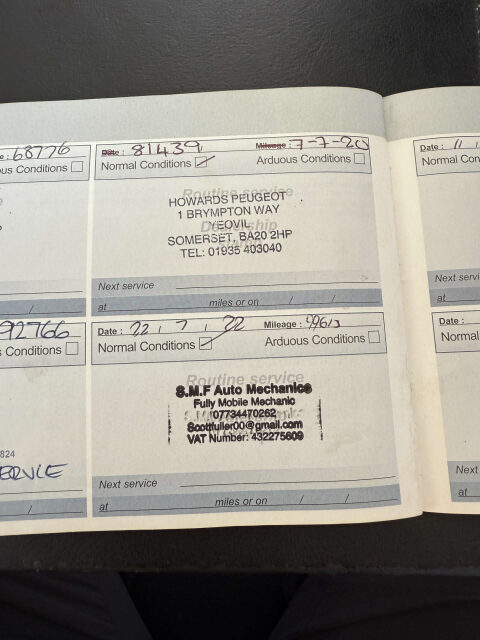 e : 68776
us Conditions
Date : 81439 Mileage : 7-7-20
Normal Conditions Arduous Conditions
Routine service
HOWARDS PEUGEOT
1 BRYMPTON WAY
YEOVIL
Dealership
SOMERSET, BA20 2HP
TEL: 01935 403040
Next service
at / / miles or on / /
Date : 11
Normal Con
Next servi
at
92766
s Conditions
824
ERVICE
/
Date : 22 / 7 / 22 Mileage :
Normal Conditions Arduous Conditions
Routine service
S.M.F Auto Mechanics
Fully Mobile Mechanic
07734470262
Scottfuller00@gmail.com
VAT Number: 432275609
Next service
at miles or on / /
Date :
Normal C
Next
at